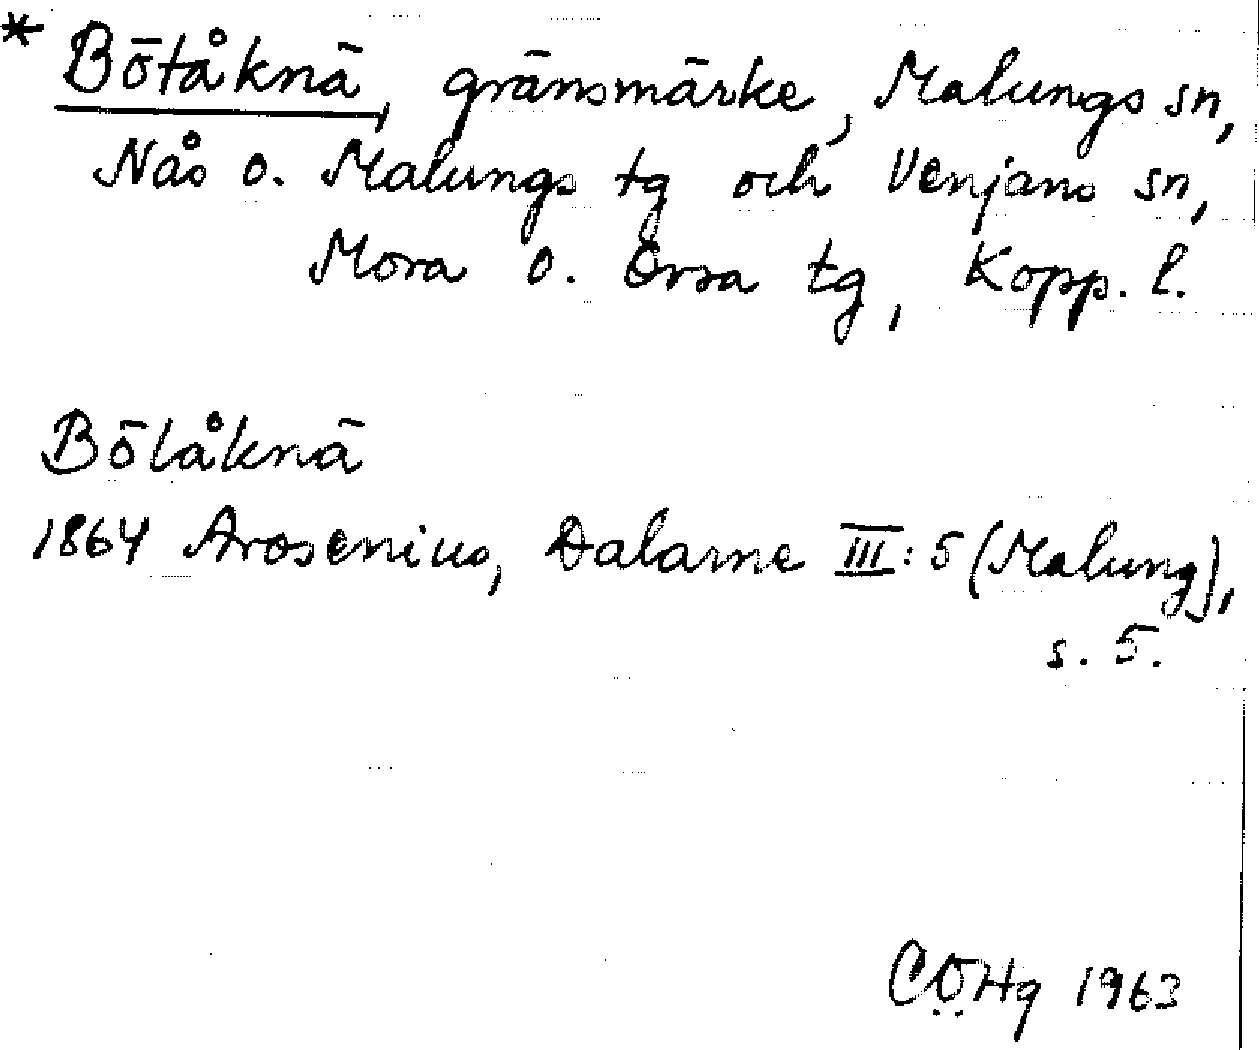 * Bötåknä, gränsmärke, Malungs sn,
Nås o. Malungs tg och Venjans sn,
Mora o. Orsa tg, Kopp. l.
Bölåknä
1864 Arosenius, Dalarne III:5 (Malung),
s. 5.
CÖHg 1963